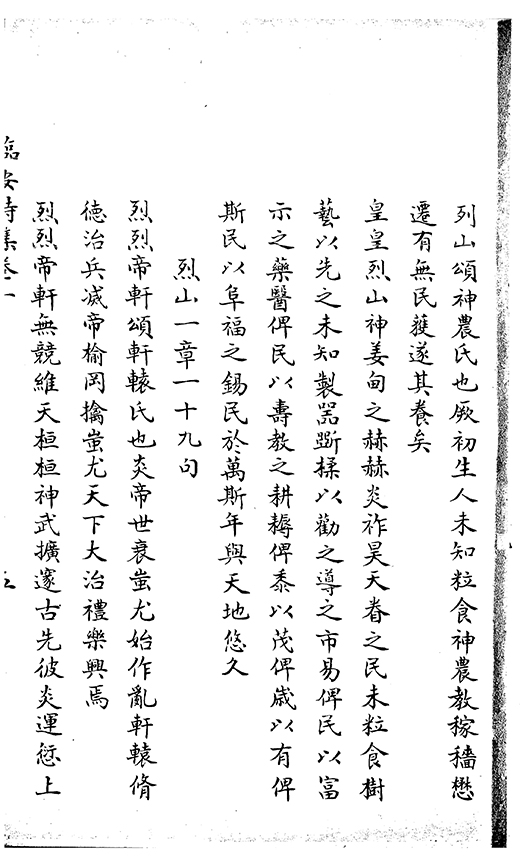 列山頌神農氏也厥初生人未知粒食神農教稼穡懋
遷有無民蒦遂其養矣
皇皇烈山神姜甸之赫赫炎祚昊天眷之民未粒食樹
藝以先之未知製器斲揉以勸之導之市易俾民以富
示之藥醫俾民以壽教之耕耨俾黍以茂俾歲以有俾
斯民以阜福之錫民於萬斯年與天地悠久
烈山一章一十九句
烈烈帝軒頌軒轅氏也炎帝世衰蚩尤始作亂軒轅脩
德治兵滅帝榆冈擒蚩尤天下大治禮樂興焉
烈烈帝軒無競維天桓桓神武擴邃古先彼炎運愆上
臨安詩集卷一